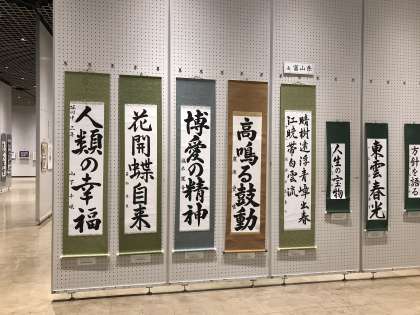 人類の幸福
花開蝶自来
博愛の精神
高鳴る鼓動
富山県
晴樹遠浮青嶂出春
江暁帯白雲流
人生の宝物
東雲春光
方針を語る